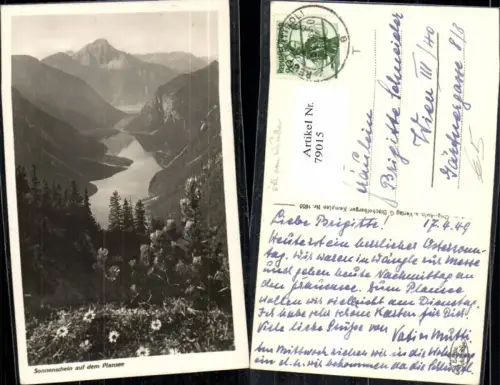 Sonnenschein auf dem Plansee
Artikel Nr.
79015
Fräulein
Brigitte Schneider
Wien III/40
Gärtnergasse 8/8
Liebe Brigitte! 17.4.49
Heute ist ein herrlicher Ostersonn-
tag. Wir waren in Wängle zur Messe
und gehen heute Nachmittag an
den Frauensee. Zum Plansee
wollen wir vielleicht am Dienstag.
Ich habe sehr schöne Karten für Dich.
Viele liebe Grüsse von Vati u. Mutti
Am Mittwoch ziehen wir in die Wohnung
ein d.h. wir bekommen da die